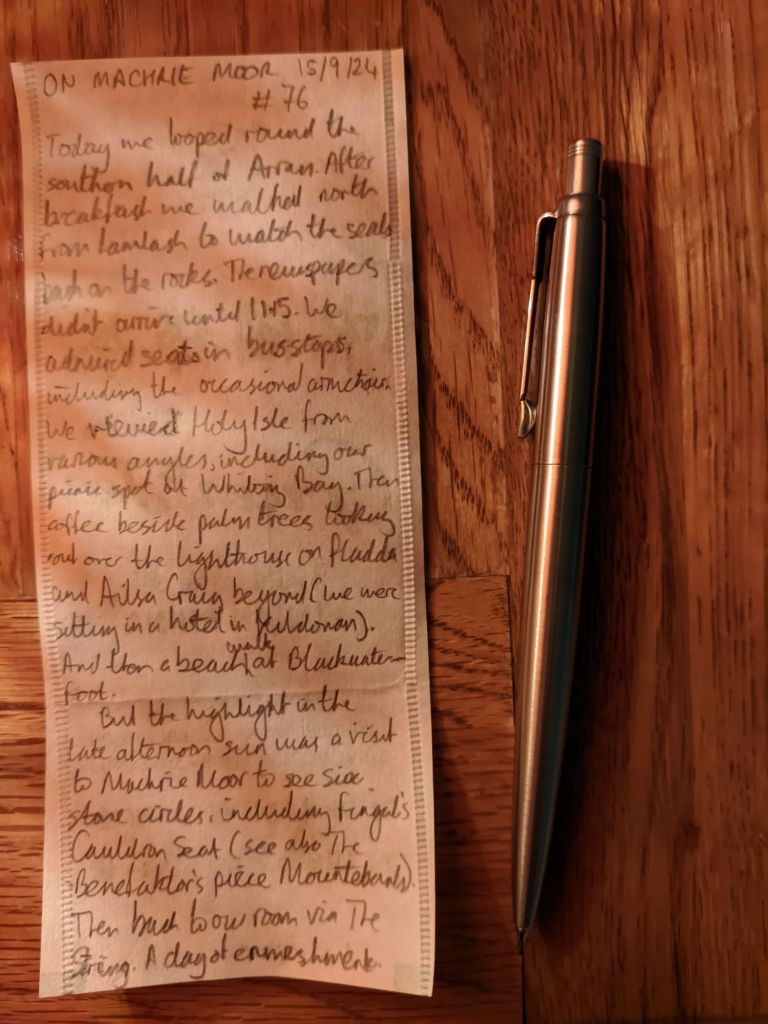 ON MACHRIE MOOR 15/9/24
#76
Today we looped round the
southern half of Arran. After
breakfast we walked north
from Lamlash to watch the seals
bask on the rocks. The newspapers
didn't arrive until 1145. We
admired seats in bus stops,
including the occasional armchair.
We viewed Holy Isle from
various angles, including our
picnic spot at Whiting Bay. Then
coffee beside palm trees looking
out over the lighthouse on Pladda
and Ailsa Craig beyond (we were
sitting in a hotel in Kildonan).
And then a beach walk at Blackwater-
foot.
But the highlight in the
late afternoon sun was a visit
to Machrie Moor to see six
stone circles, including Fingal's
Cauldron Seat (see also The
Benefaktor's piece Mountebanks).
Then back to our room via The
String. A day of enmeshment.